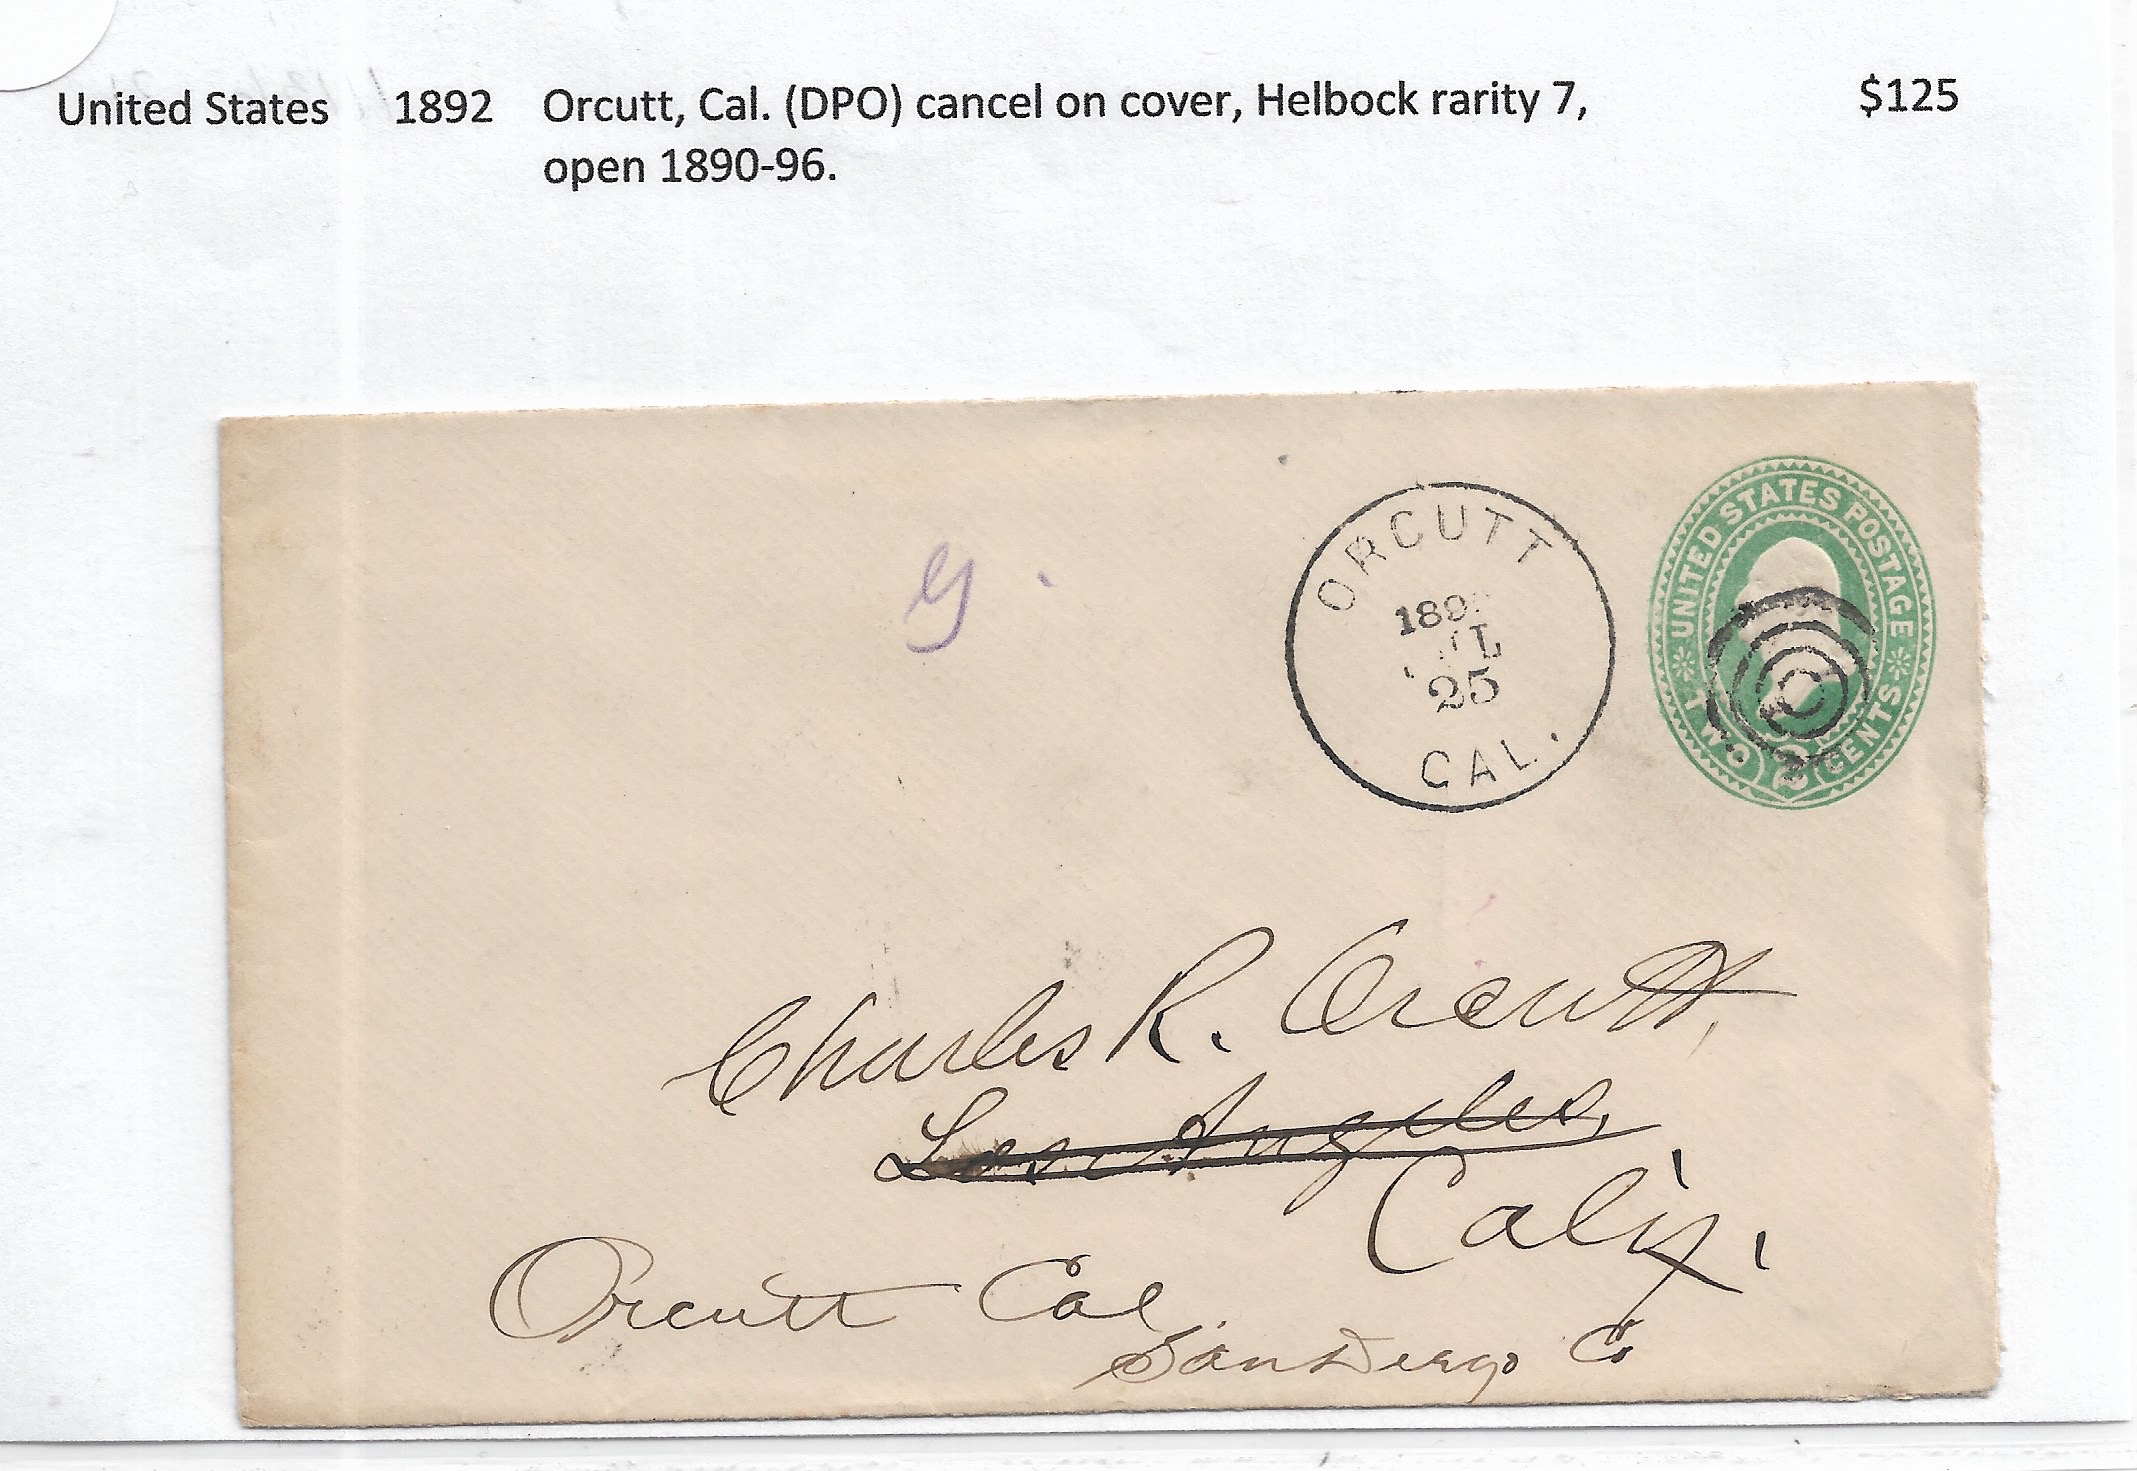 United States 1892 Orcutt, Cal. (DPO) cancel on cover, Helbock rarity 7, $125
open 1890-96.
ORCUTT
25
CAL.
UNITED STATES POSTAGE
TWO 2 CENTS
Charles R. Orcutt,
Los Angeles,
Calif.
Orcutt Cal
San Diego Co